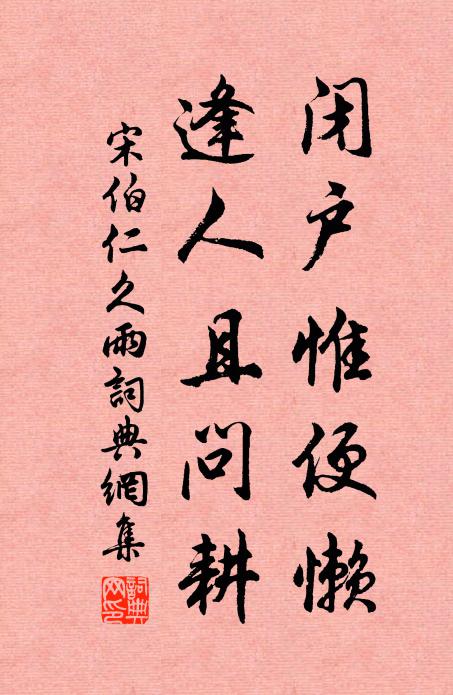 闭户惟便懒
逢人且问耕
宋伯仁久雨詞典網集
詞典網印